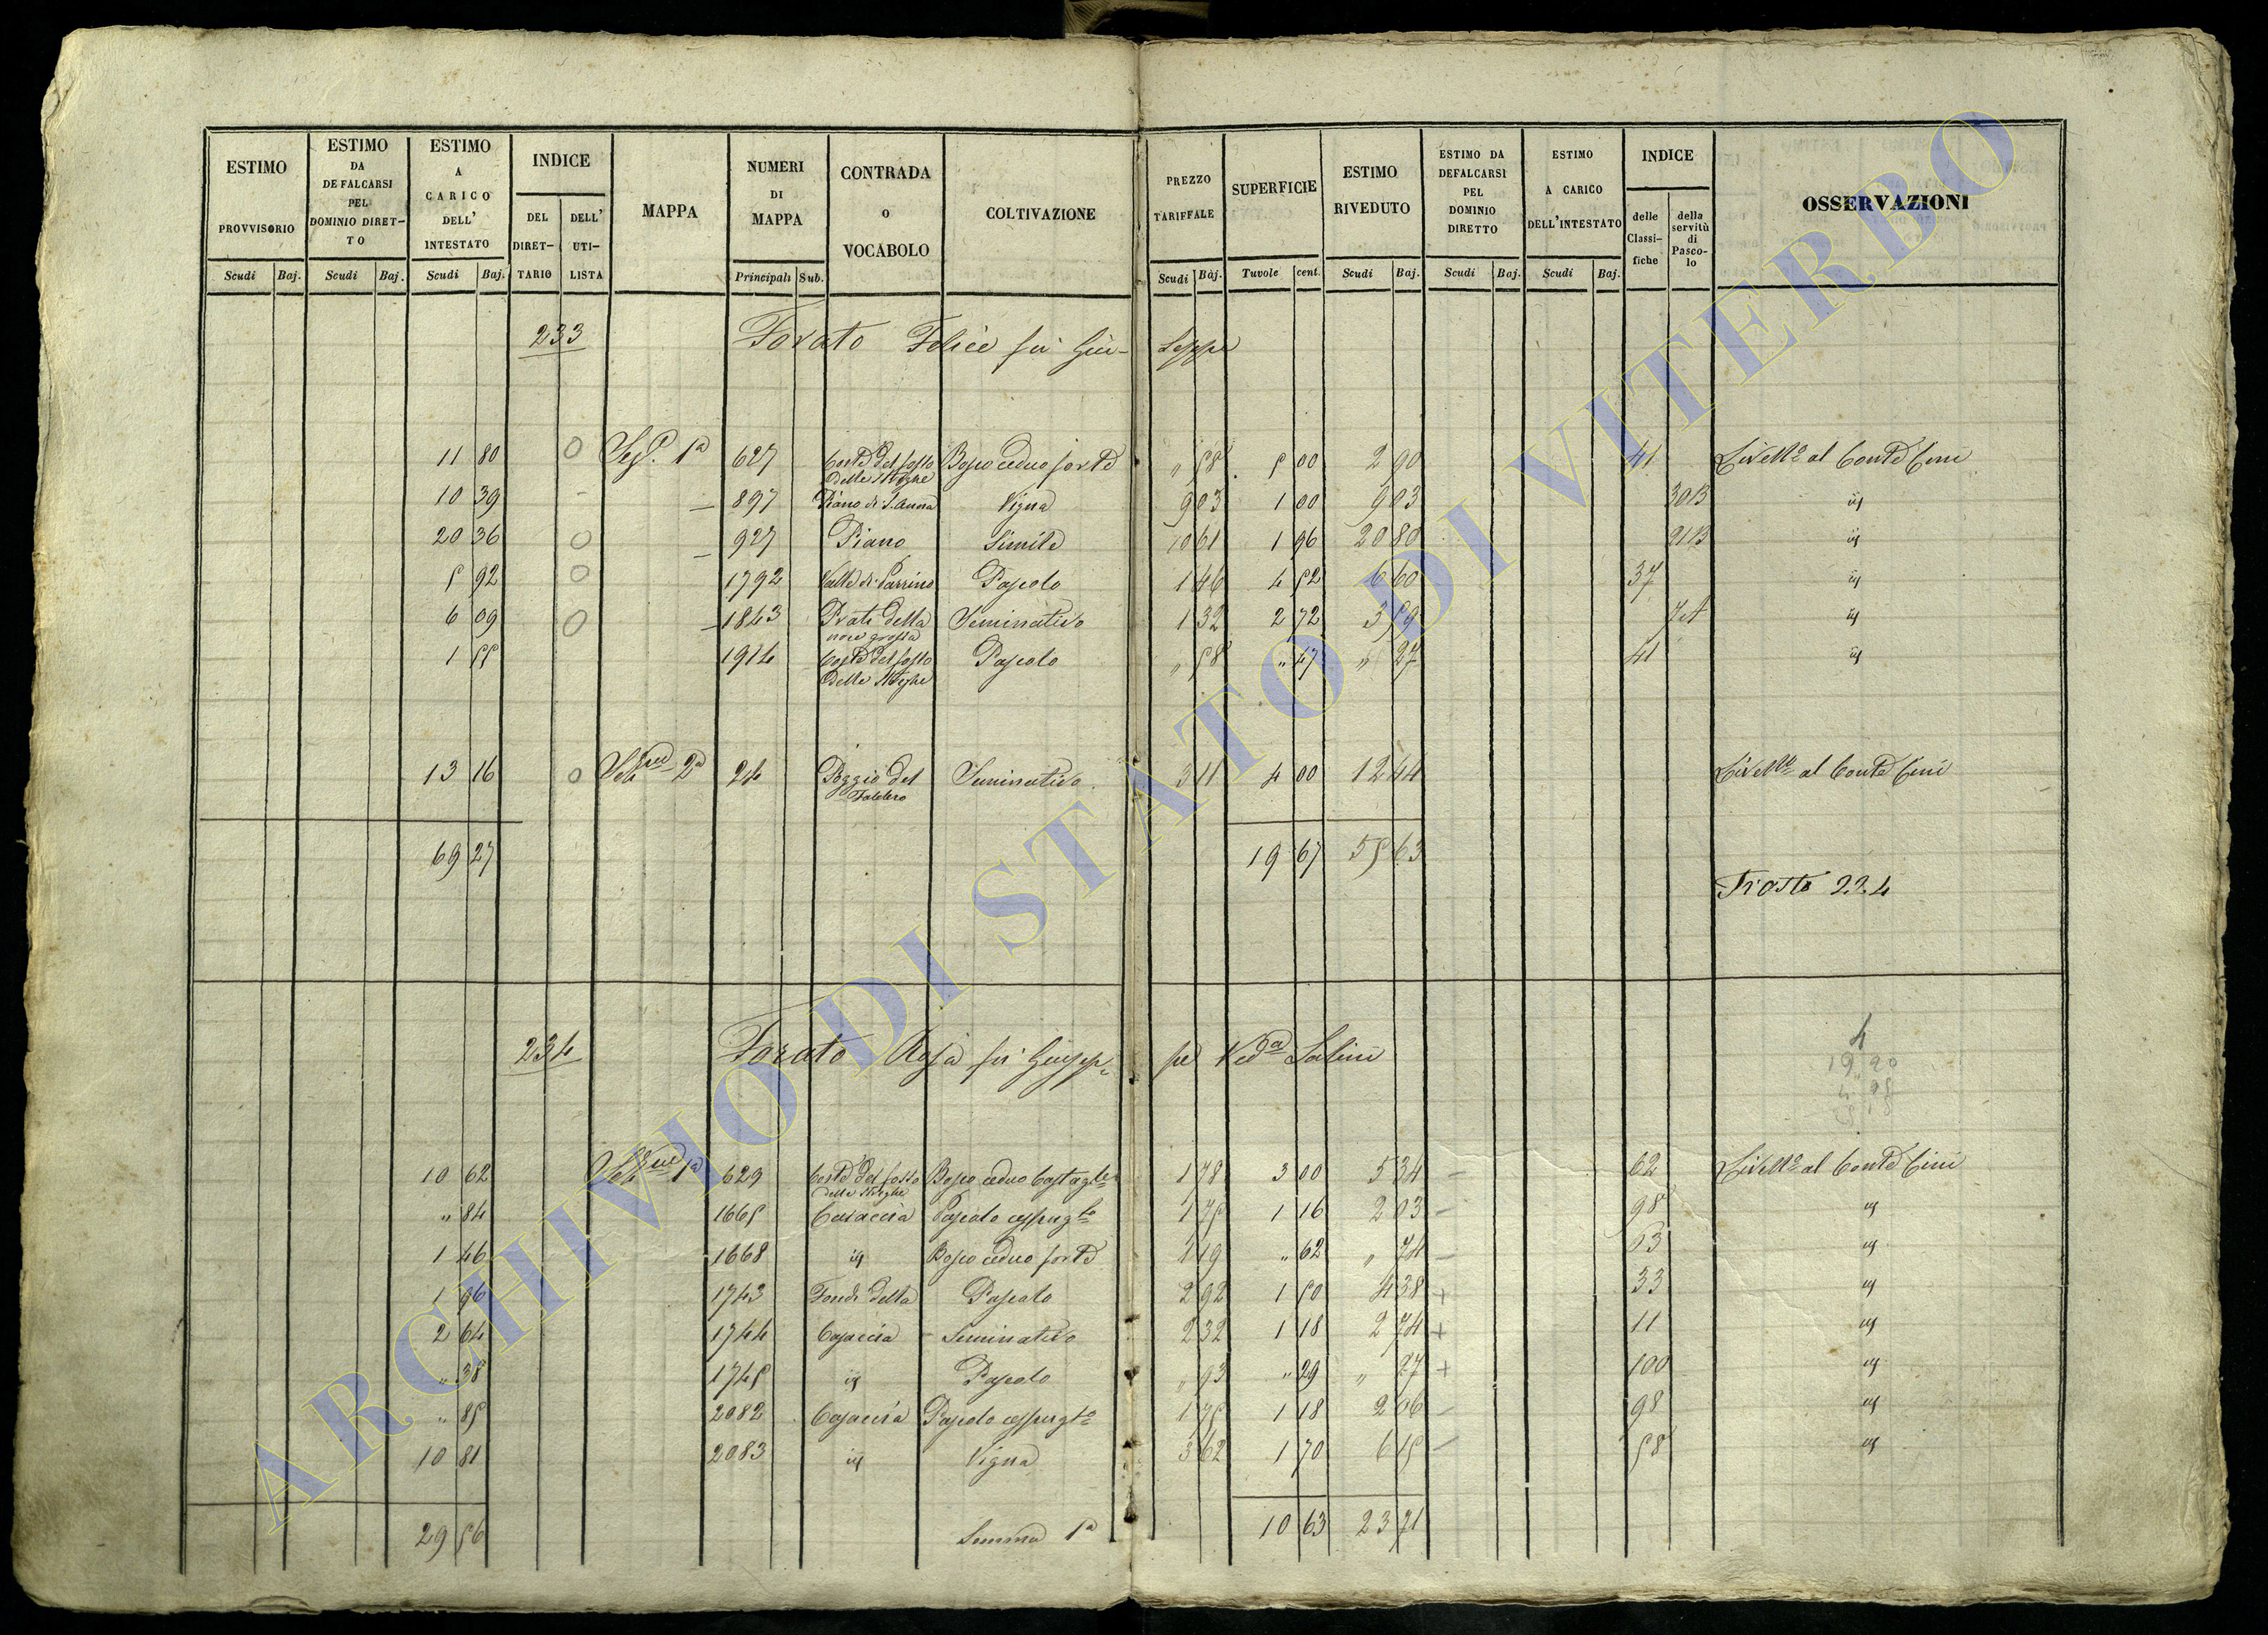 ESTIMO PROVVISORIO Scudi Baj.
ESTIMO DA DEFALCARSI PEL DOMINIO DIRET-TO Scudi Baj.
ESTIMO A CARICO DELL' INTESTATO Scudi Baj.
INDICE DEL DIRET-TARIO DELL' UTI-LISTA
MAPPA
NUMERI DI MAPPA Principali Sub.
CONTRADA O VOCABOLO
COLTIVAZIONE
PREZZO TARIFFALE Scudi Baj.
SUPERFICIE Tavole cent.
ESTIMO RIVEDUTO Scudi Baj.
ESTIMO DA DEFALCARSI PEL DOMINIO DIRETTO Scudi Baj.
ESTIMO A CARICO DELL'INTESTATO Scudi Baj.
INDICE delle Classi-fiche della servitù di Pasco-lo
OSSERVAZIONI
233 Forato Felice fu Giu- seppe
11 80 0 1a 627 Coste del fosso delle Streghe Bosco ceduo forte " 58 5 00 2 90 41 Livello al Conte Cini
10 39 - 897 Piano di S. Anna Vigna 9 03 1 00 9 03 30 B
20 36 0 927 Piano Simile 10 61 1 96 20 80 21 B
5 92 0 1792 Valle di Pascolo 1 46 4 52 6 60 37
6 09 0 1843 Prati della noce grossa Seminativo 1 32 2 72 3 59 7 A
1 55 1914 Coste del fosso delle Streghe Pascolo " 58 " 47 " 27 41
13 16 0 2a 24 Poggio del Seminativo 3 11 4 00 12 44 Livello al Conte Cini
69 27 19 67 55 63
224
234 Forato Rosa fu Giusep- pe Veda Salini
4
19 20
10 62 1a 629 Coste del fosso delle Streghe Bosco ceduo Castagle 1 78 3 00 5 34 - 62 Livello al Conte Cini
" 84 1665 Casaccia Pascolo cespugto 1 75 1 16 2 03 - 98
1 46 1668 Bosco ceduo forte 1 19 " 62 " 74 - 63
1 96 1743 Fondi della Pascolo 2 92 1 50 4 38 + 33
2 64 1744 Casaccia Seminativo 2 32 1 18 2 74 + 11
" 38 1745 Pascolo " 93 " 29 " 27 + 100
" 85 2082 Casaccia Pascolo cespugto 1 75 1 18 2 06 - 98
10 81 2083 Vigna 3 62 1 70 6 15 - 58
29 56 Summa 1a 10 63 23 71
ARCHIVIO DI STATO DI VITERBO